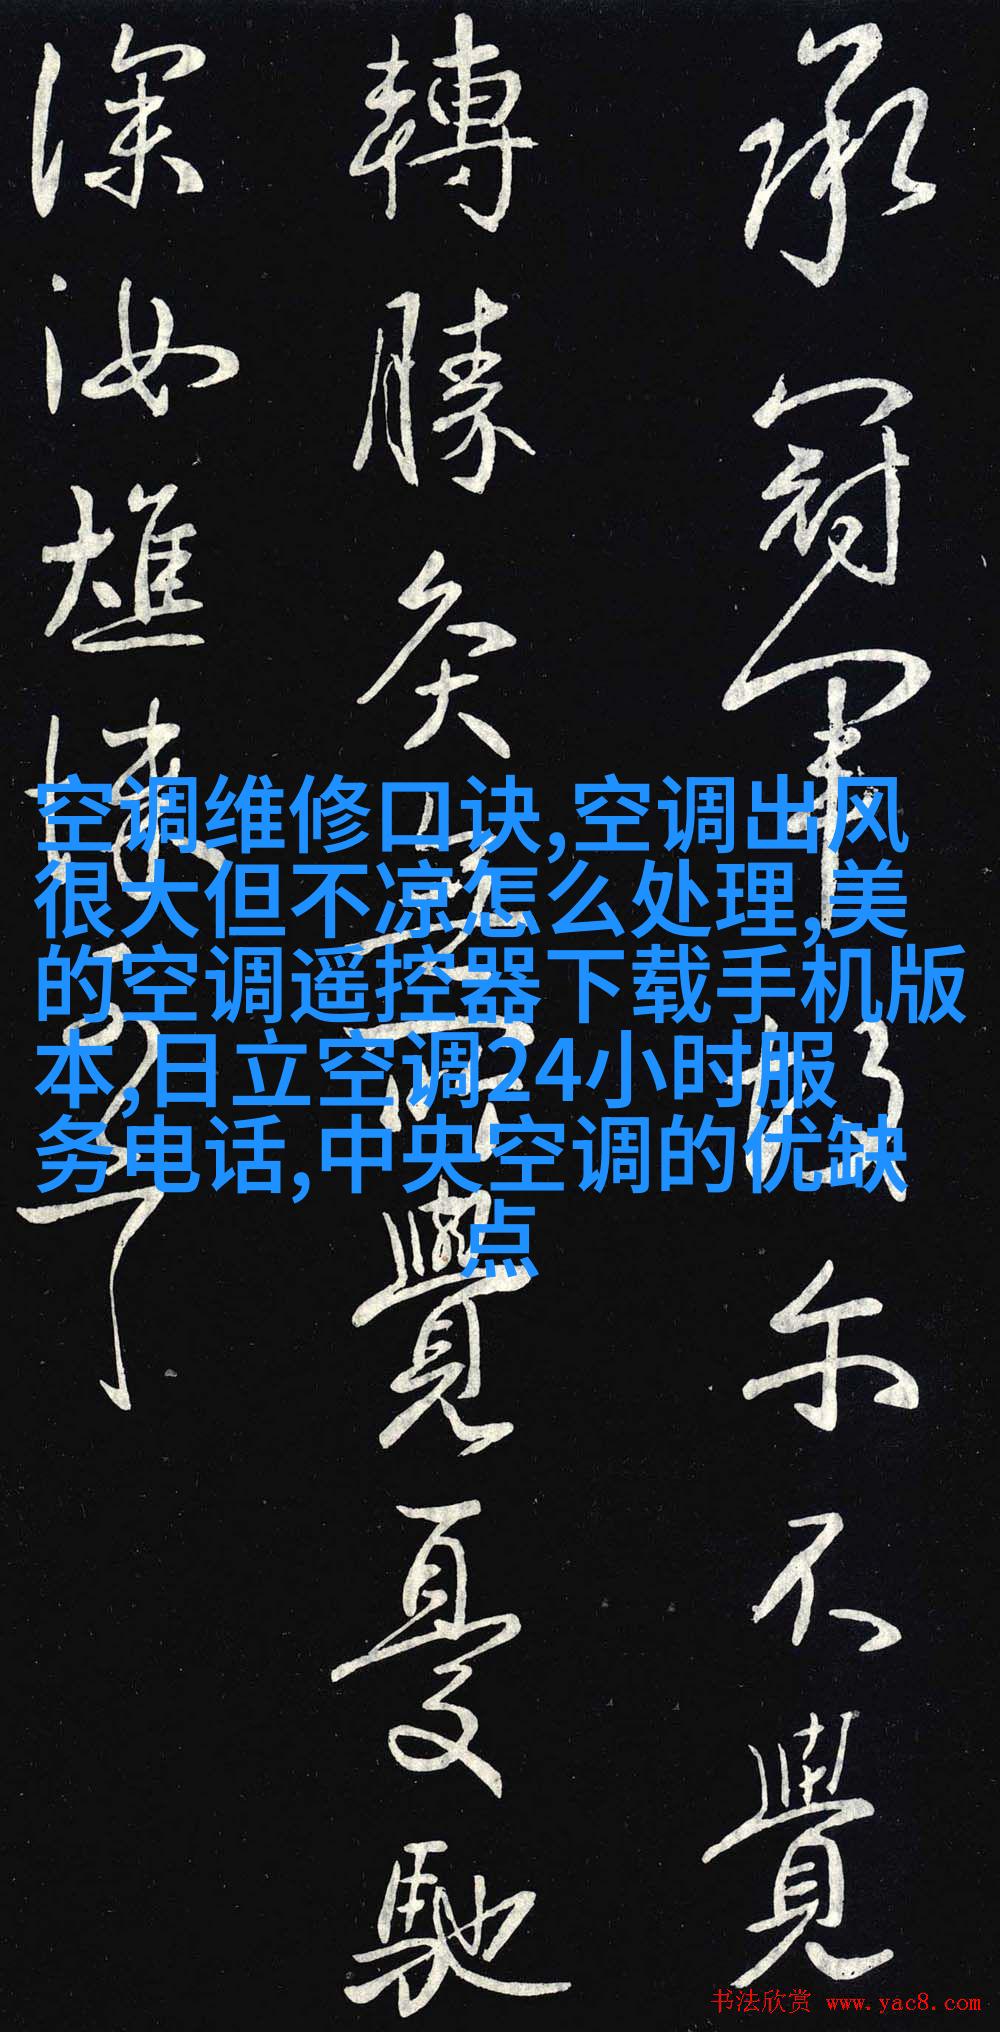 承冠軍尔不覺
轉勝灸無所覺憂馳
深汝燋了
空调维修口诀,空调出风
很大但不凉怎么处理,美
的空调遥控器下载手机版
本,日立空调24小时服
务电话,中央空调的优缺
点
书法欣赏 www.yac8.com